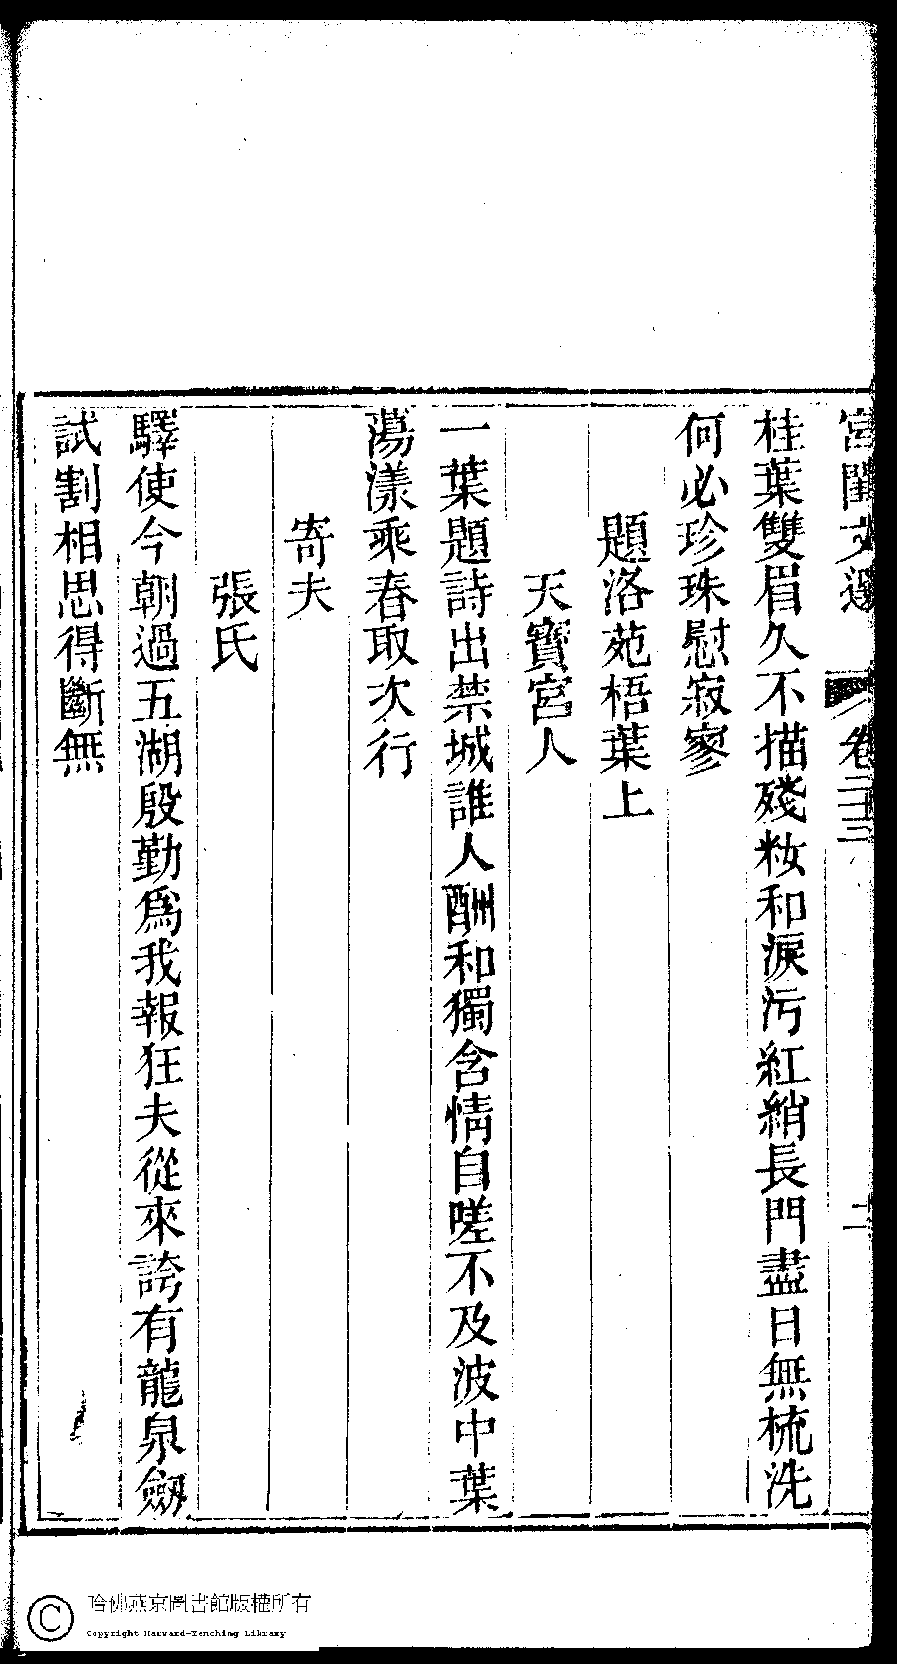 宮閨文選 卷二十三 二
桂葉雙眉久不描殘粧和淚污紅綃長門盡日無梳洗
何必珍珠慰寂寥
題洛苑梧葉上
天寶宮人
一葉題詩出禁城誰人酬和獨含情自嗟不及波中葉
蕩漾乘春取次行
寄夫
張氏
驛使今朝過五湖殷勤為我報狂夫從來誇有龍泉劔
試割相思得斷無
哈佛燕京圖書館版權所有
Copyright Harvard-Yenching Library